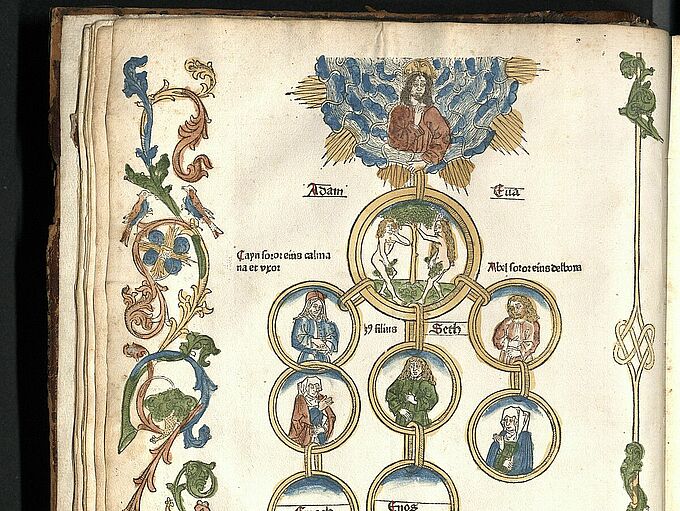 Adam
Eua
Cayn soror eius calma
na et vxor
Abel soror eius delbora
3⁹ filius
Seth
Enoch
Enos